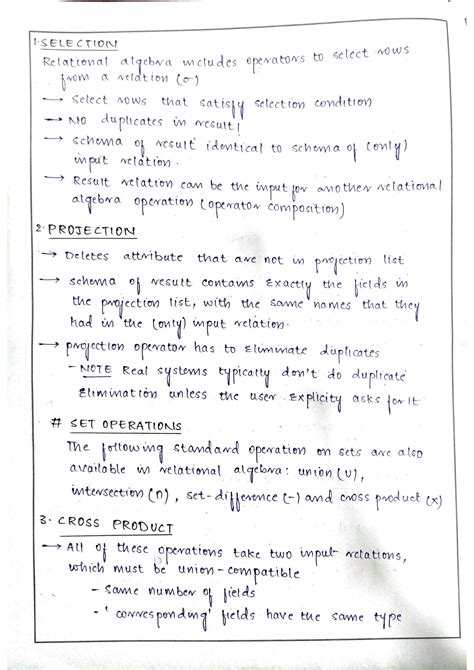 1. SELECTION
Relational algebra includes operators to select rows
from a relation (σ)
→ select rows that satisfy selection condition
→ NO duplicates in result!
→ schema of result identical to schema of (only)
input relation.
→ Result relation can be the input for another relational
algebra operation (operator composition)
2. PROJECTION
→ Deletes attribute that are not in projection list
→ schema of result contains Exactly the fields in
the projection list, with the same names that they
had in the (only) input relation.
→ projection operator has to Eliminate duplicates
- NOTE Real systems typically don't do duplicate
Elimination unless the user Explicity asks for it
# SET OPERATIONS
The following standard operation on sets are also
available in relational algebra: union (U),
intersection (∩), set-difference (-) and cross product (x)
3. CROSS PRODUCT
→ All of these operations take two input relations,
which must be union-compatible
- same number of fields
- 'corresponding' fields have the same type